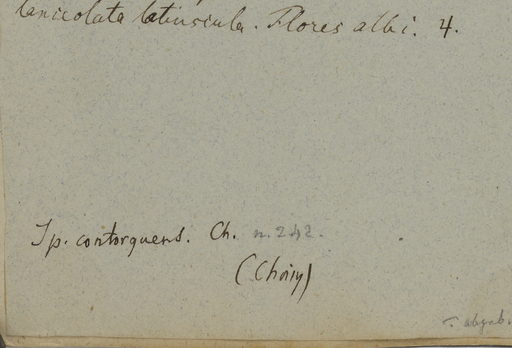 lanceolata latiuscula. Flores albi. 4.
Ip. contorquens. Ch. n. 242.
(Choisy)